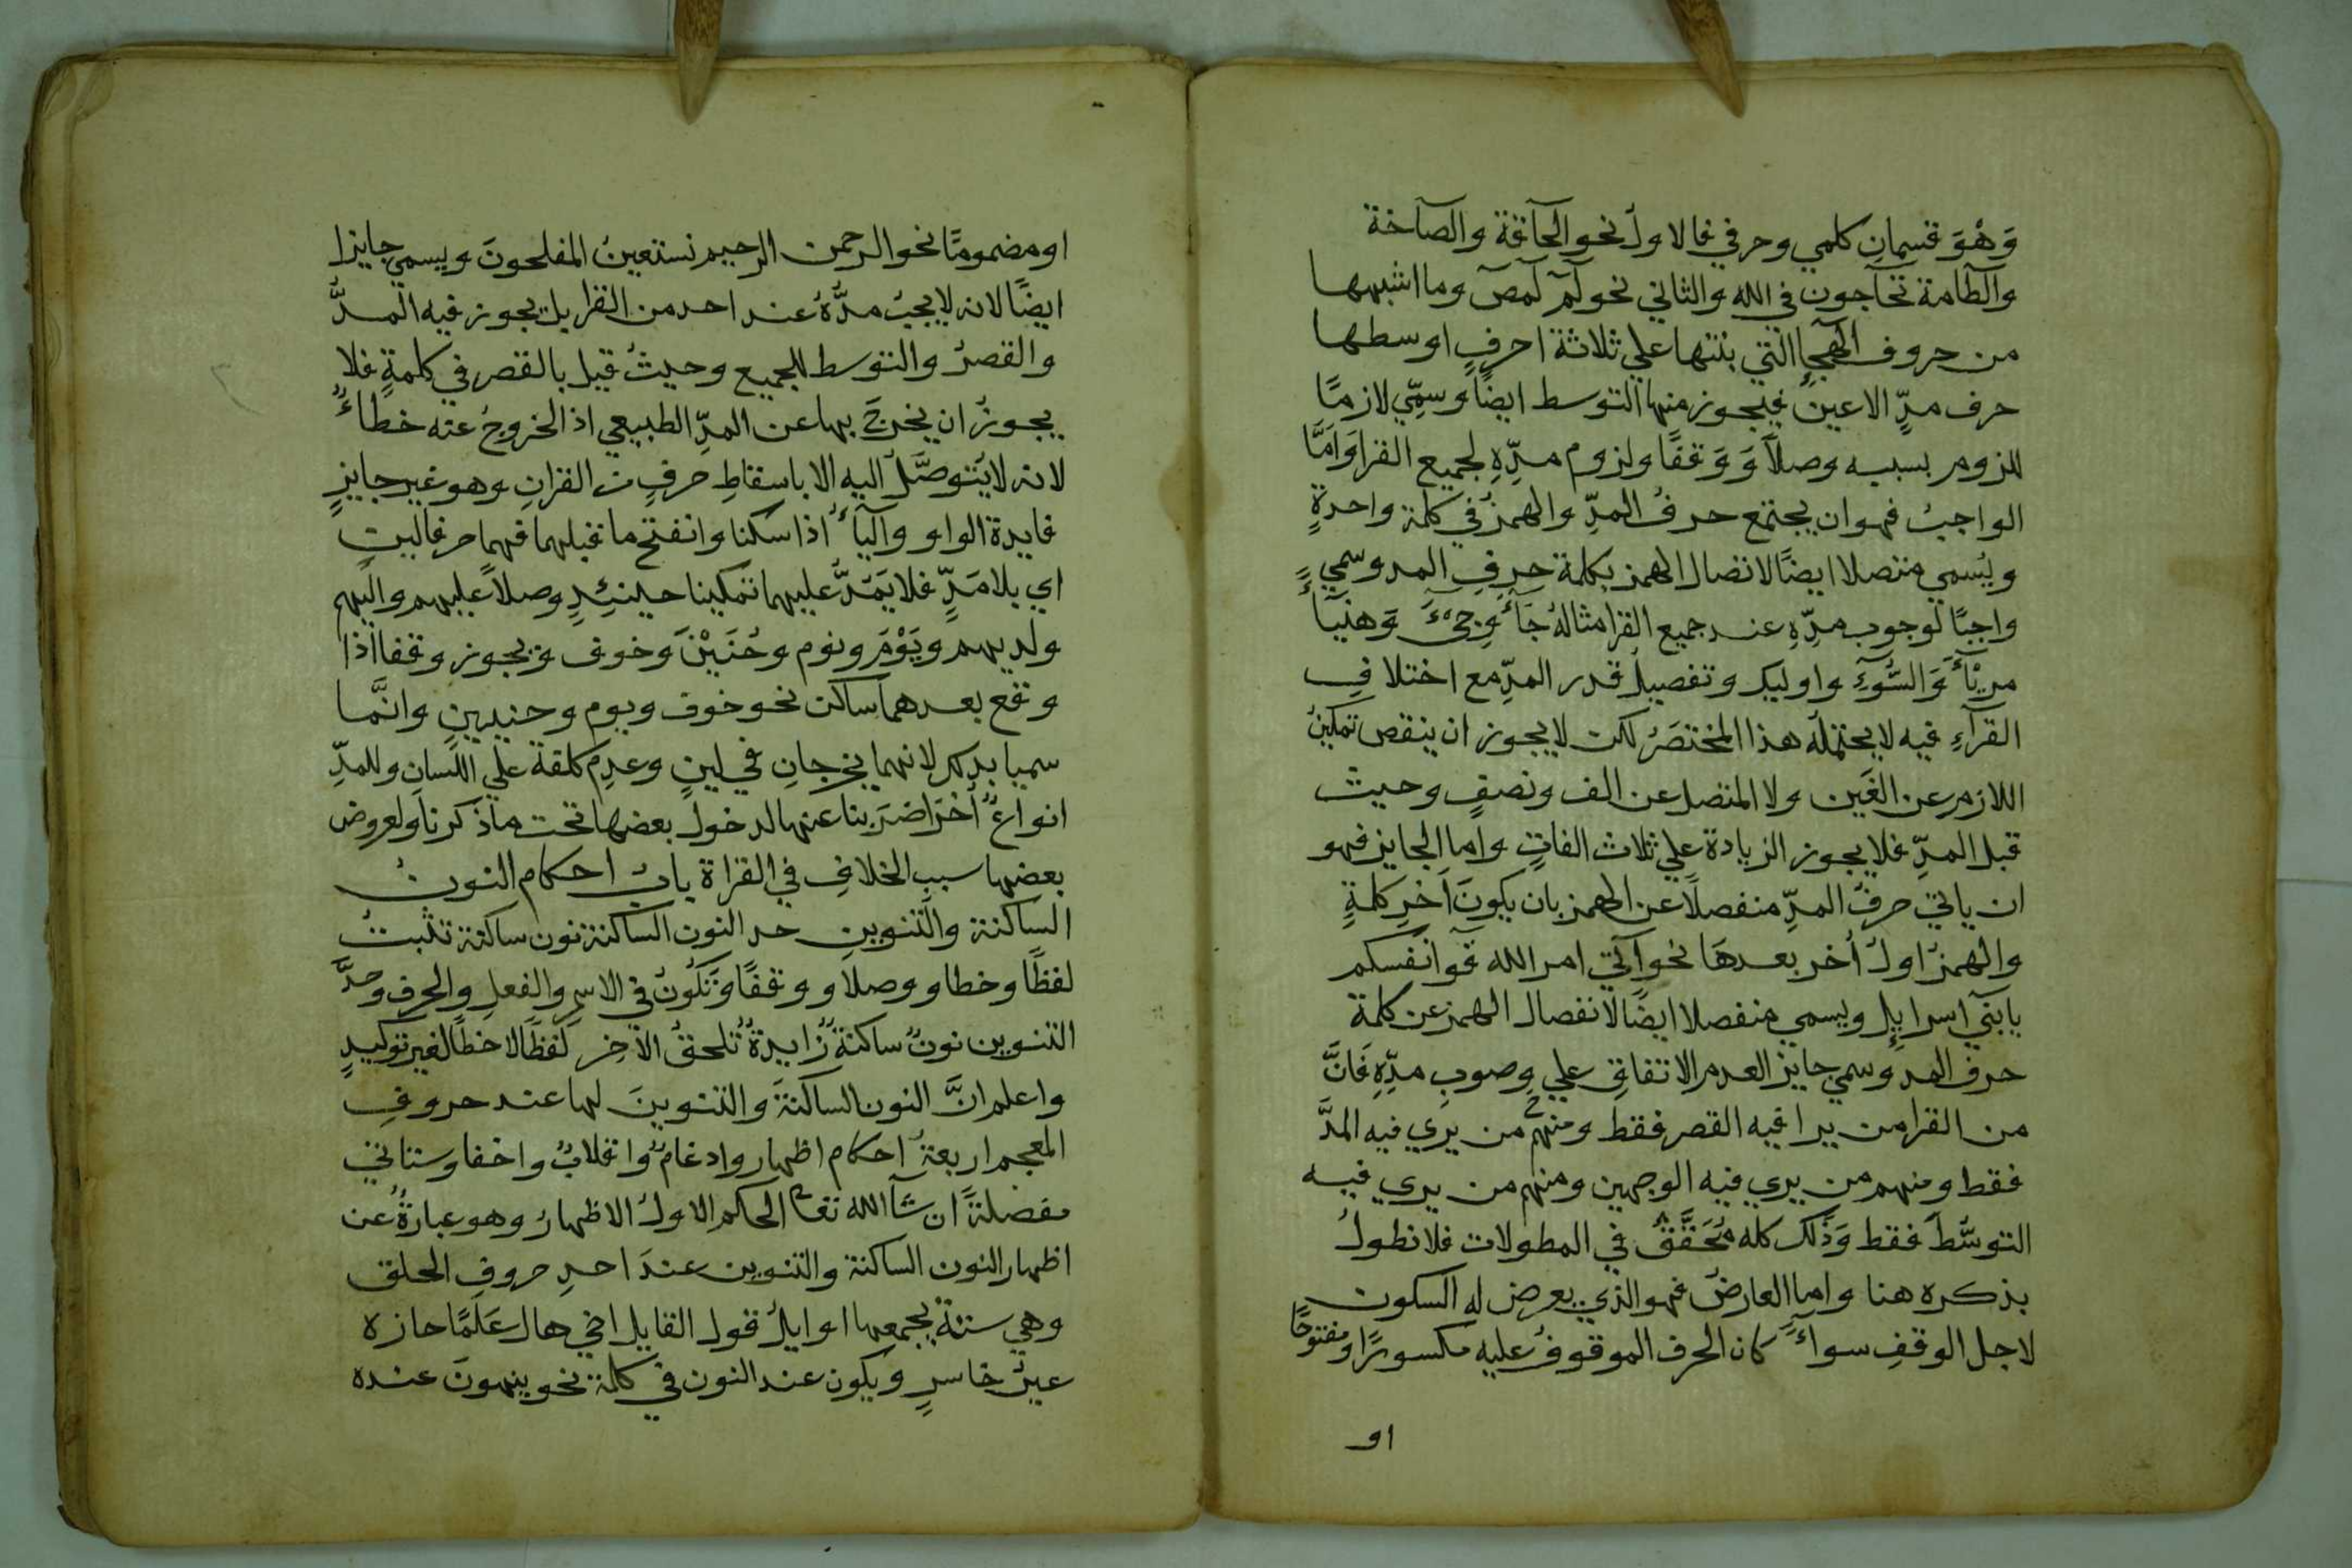 وَهُوَ قسمان كلمي وحرفي فالاول نحو الحآقة والصآخة
والطآمة تحآجون في الله والثاني نحو آلم آلمص وما اشبهها
من حروف الهجاء التي بنتها علي ثلاثة احرفٍ اوسطها
حرف مدٍّ الا عين فيجوز منها التوسط ايضًا وسمّي لازمًا
للزوم سببه وصلاً وَوَقفًا ولزوم مدّهِ لجميع القرا وَامَّا
الواجبُ فهو ان يجتمع حرفُ المدّ والهمزُ في كلمة واحدةٍ
ويُسمي متصلا ايضًا لاتصال الهمز بكلمة حرفِ المد وسمي
واجبًا لوجوب مدّهِ عند جميع القرا مثالهُ جَآءَ وَجيءَ وَهنيآءً
مريآءً وَالسُّوۤءِ واوليك وتفصيل قدر المدّ مع اختلافِ
القرآءِ فيه لا يحتمله هذا المختصَرُ لكن لا يجوز ان ينقص تمكينُ
اللازم عن الفَين ولا المتصل عن الف ونصفٍ وحيث
قبل المدّ فلا يجوز الزيادة علي ثلاث الفاتٍ واما الجايز فهو
ان ياتي حرفُ المدّ منفصلاً عن الهمز بان يكونَ آخرِ كلمةٍ
والهمزُ اولُ أخر بعدهَا نحو آتي امر الله قوآ انفسكم
يا بنيۤ اسرايل ويسمي منفصلا ايضًا لانفصال الهمز عن كلمة
حرف المد وسمي جايز العدم الاتفاقِ علي وصوبِ مدّهِ فَانَّ
من القرا من يرا فيه القصر فقط ومنهم من يري فيه المدَّ
فقط ومنهم من يري فيه الوجهين ومنهم من يري فيه
التوسُّطَ فقط وَذلك كله مُحَقَّقٌ في المطولات فلا نطولُ
بذكره هنا واما العارضُ فهو الذي يعرض له السكون
لاجل الوقفِ سواءً كان الحرف الموقوفُ عليه مكسورًا او مفتوحًا
او
او مضمومًا نحو الرحمن الرحيم نستعينُ المفلحونَ ويسمي جايزا
ايضًا لانه لا يجبُ مدُّهُ عند احد من القرا بل يجوز فيه المدُّ
والقصرُ والتوسط للجميع وحيثُ قيل بالقصر في كلمةٍ فلا
يجوزُ ان يخرجَ بها عن المدّ الطبيعي اذ الخروجُ عنه خطاءٌ
لانه لا يُتوصَّلُ اليه الا باسقاطِ حرفٍ من القرانِ وهو غير جايزٍ
فايدة الواو واليآءُ اذا سكنا وانفتح ما قبلهما فهما حرفا لينٍ
اي بلا مَدٍّ فلا يَمَدَّ عليهما تمكينا حينئِذٍ وصلاً عليهم واليهم
ولديهم ويَوْمَ ونوم وحُنَيْنَ وخوف ويجوز وقفا اذا
وقع بعدهما ساكن نحو خوف ويوم وحنيين وانَّما
سميا بذلك لانهما يخرجانِ في لينٍ وعدِم كلفة علي اللسان وللمدّ
انواعٌ أُخَرَ اضرَبنا عنها لدخول بعضها تحت ما ذكرنا ولعروض
بعضها سبب الخلافِ في القراة بابُ احكام النونُ
الساكنة والتنوينِ حد النون الساكنة نون ساكنة تثبتُ
لفظًا وخطا ووصلاً ووقفًا وَتكُونُ في الاسمِ والفعلِ والحرف وحدَّ
التنوين نونٌ ساكنةٌ زايدةٌ تلحقُ الآخر لفظًا لا خطًا لغير توكيدٍ
واعلم انَّ النون الساكنةَ والتنوينَ لها عند حروفِ
المعجم اربعةُ احكام اظهار وادغامٌ واقلابٌ واخفا وستاتي
مفصلةً ان شآ الله تعا الحكم الاولُ الاظهارُ وهو عبارةٌ عن
اظهار النون الساكنة والتنوين عندَ احدِ حروفِ الحلق
وهي ستةٌ يجمعها اوايلُ قول القايل اخي هال عَلمًا حازه
غيرُ خاسرٍ ويكون عند النون في كلمة نحو ينهونَ عنده